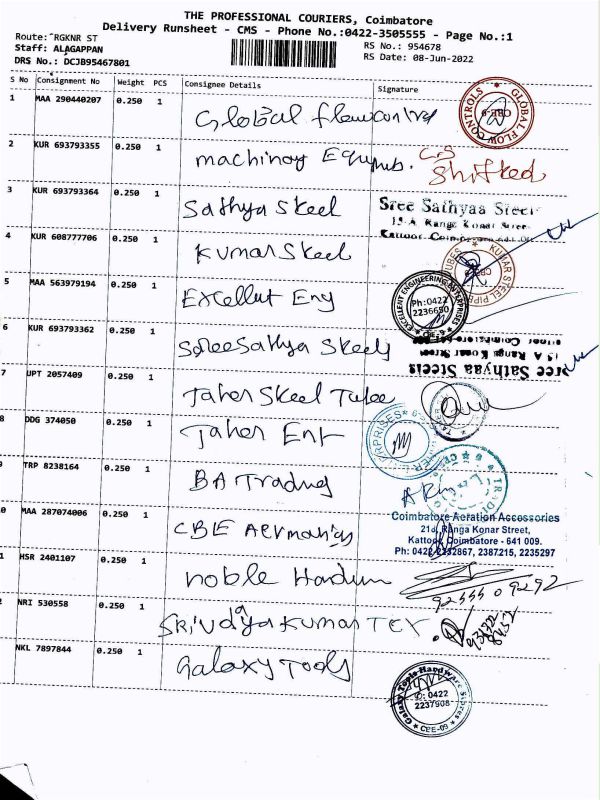 THE PROFESSIONAL COURIERS, Coimbatore
Delivery Runsheet - CMS - Phone No.:0422-3505555 - Page No.:1
Route: RGKNR ST
RS No.: 954678
Staff: ALAGAPPAN
RS Date: 08-Jun-2022
DRS No.: DCJB95467801
S No Consignment No Weight PCS Consignee Details Signature
1 MAA 290440207 0.250 1 Global flow control
GLOBAL FLOW CONTROLS CBE-9
2 KUR 693793355 0.250 1 machinary Equpub. C.S Shifted
3 KUR 693793364 0.250 1 Sathya Steel
Sree Sathyaa Steels
15-A Ranga Konar Street
Kattoor Coimbatore
4 KUR 608777706 0.250 1 Kumar Steel
KUMAR STEEL PIPE
5 MAA 563979194 0.250 1 Excellut Eng
EXCELLENT ENGINEERING ENTERPRISES
Ph:0422
2236690
6 KUR 693793362 0.250 1 Sree Sathya Steels
Sree Sathyaa Steels
15 A Ranga Konar Street
7 UPT 2057409 0.250 1 Taher Steel Tube
8 DDG 374050 0.250 1 Taher Ent
9 TRP 8238164 0.250 1 BA Trading
0 MAA 287074006 0.250 1 CBE Aermanigs
Coimbatore Aeration Accessories
21d, Ranga Konar Street,
Kattoor, Coimbatore - 641 009.
Ph: 0422-2232867, 2387215, 2235297
1 HSR 2401107 0.250 1 noble Hardwn
92555 09292
2 NRI 530558 0.250 1 SRI Vdaya Kumar TEX.
NKL 7897844 0.250 1 Galaxy Tools
Galaxy Tools Hardware Stores
O: 0422
2237908
CBE-09